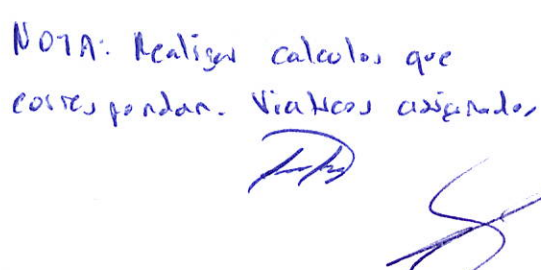 NOTA: Realizar calculos que
correspondan. Viaticos asignados